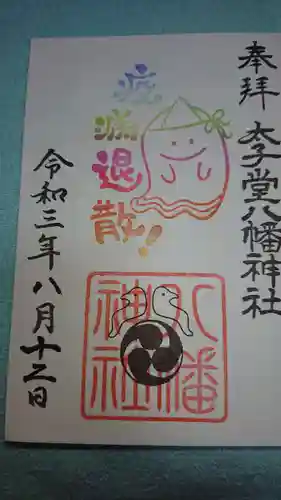 奉拝
太子堂八幡神社
疫病退散！
八幡
神社
令和三年八月十二日